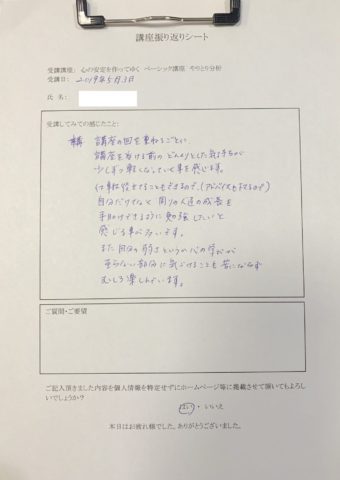 講座振り返りシート
受講講座: 心の安定を作ってゆく ベーシック講座 やりとり分析
受講日: 2019年5月3日
氏 名:
受講してみての感じたこと:
講座の回を重ねるごとに
講座を受ける前の どんよりとした気持ちが
少しずつ軽くなっていく事を感じます。
仕事に役立せることもできますので、(アドバイスもできるので)
自分だけでなく 周りの人達の成長を
手助けができるように 勉強したいと
感じる事が多いです。
また自分の弱さというか心の
足らない部分に気づけることも 苦にならず
むしろ楽しんでいます。
ご質問・ご要望
ご記入頂きました内容を個人情報を特定せずにホームページ等に掲載させて頂いてもよろし
いでしょうか?
はい ・ いいえ
本日はお疲れ様でした。ありがとうございました。